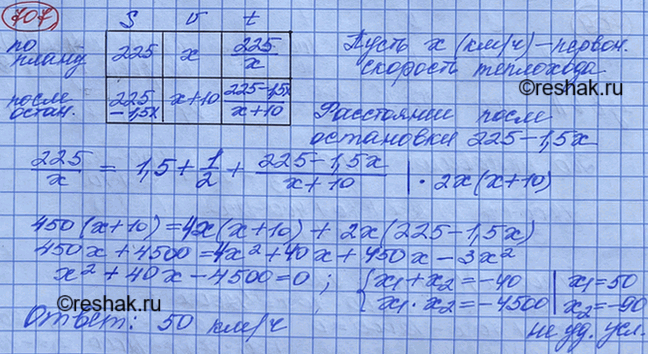 707.
S v t
по плану 225 x 225/x
после остан. 225-1,5x x+10 (225-1,5x)/(x+10)
Пусть x (км/ч) - первон.
скорость теплохода
©reshak.ru
Расстояние после
остановки 225-1,5x
225/x = 1,5 + 1/2 + (225-1,5x)/(x+10) | · 2x(x+10)
450(x+10) = 4x(x+10) + 2x(225-1,5x)
450x + 4500 = 4x² + 40x + 450x - 3x²
x² + 40x - 4500 = 0 ; { x₁+x₂ = -40 | x₁ = 50
x₁ · x₂ = -4500 | x₂ = -90
©reshak.ru
не уд. усл.
Ответ: 50 км/ч